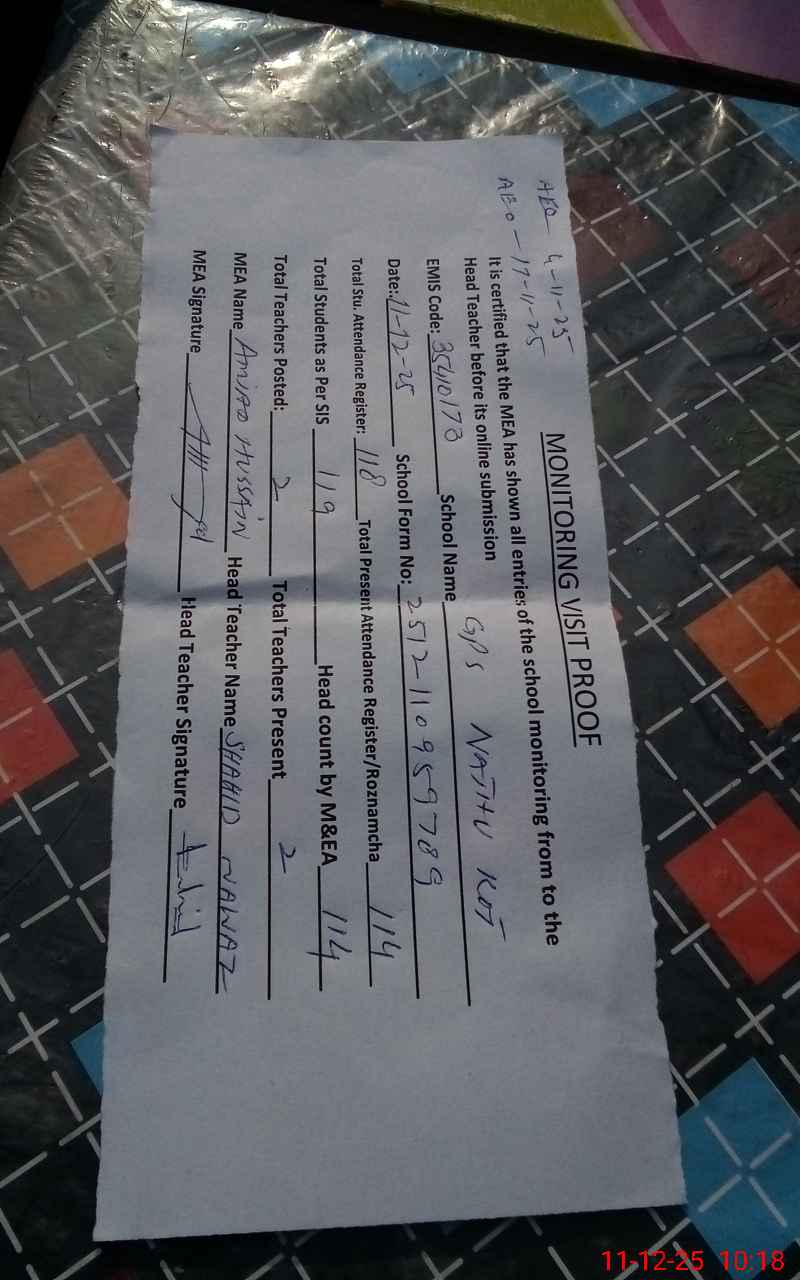 AEO 4-11-25
AEO - 17-11-25
MONITORING VISIT PROOF
It is certified that the MEA has shown all entries of the school monitoring from to the
Head Teacher before its online submission
EMIS Code: 35410173 School Name GPS NATHU KOT
Date: 11-12-25 School Form No: 2512-110959789
Total Stu. Attendance Register: 118 Total Present Attendance Register/Roznamcha 114
Total Students as Per SIS 119 Head count by M&EA 114
Total Teachers Posted: 2 Total Teachers Present 2
MEA Name AMJAD HUSSAIN Head Teacher Name SHAHID NAWAZ
MEA Signature Head Teacher Signature
11-12-25 10:18